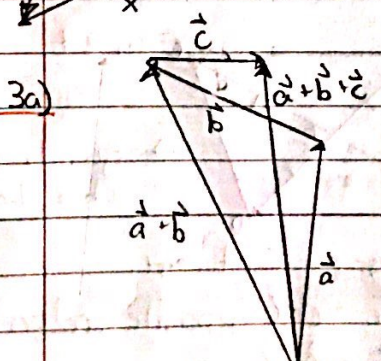 x
c⃗
3a)
a⃗+b⃗+c⃗
b⃗
a⃗+b⃗
a⃗